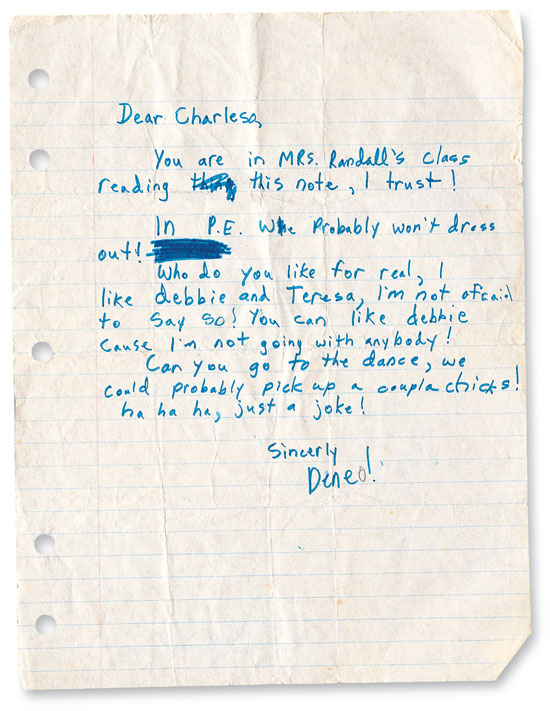 Dear Charlesa,
You are in MRS. Randall's class
reading this note, I trust!
In P.E. We Probably won't dress
out!
Who do you like for real, I
like debbie and Teresa, I'm not afraid
to say so! You can like debbie
cause I'm not going with anybody!
Can you go to the dance, we
could probably pick up a coupla chicks!
ha ha ha, just a joke!
Sincerly
Deneo!